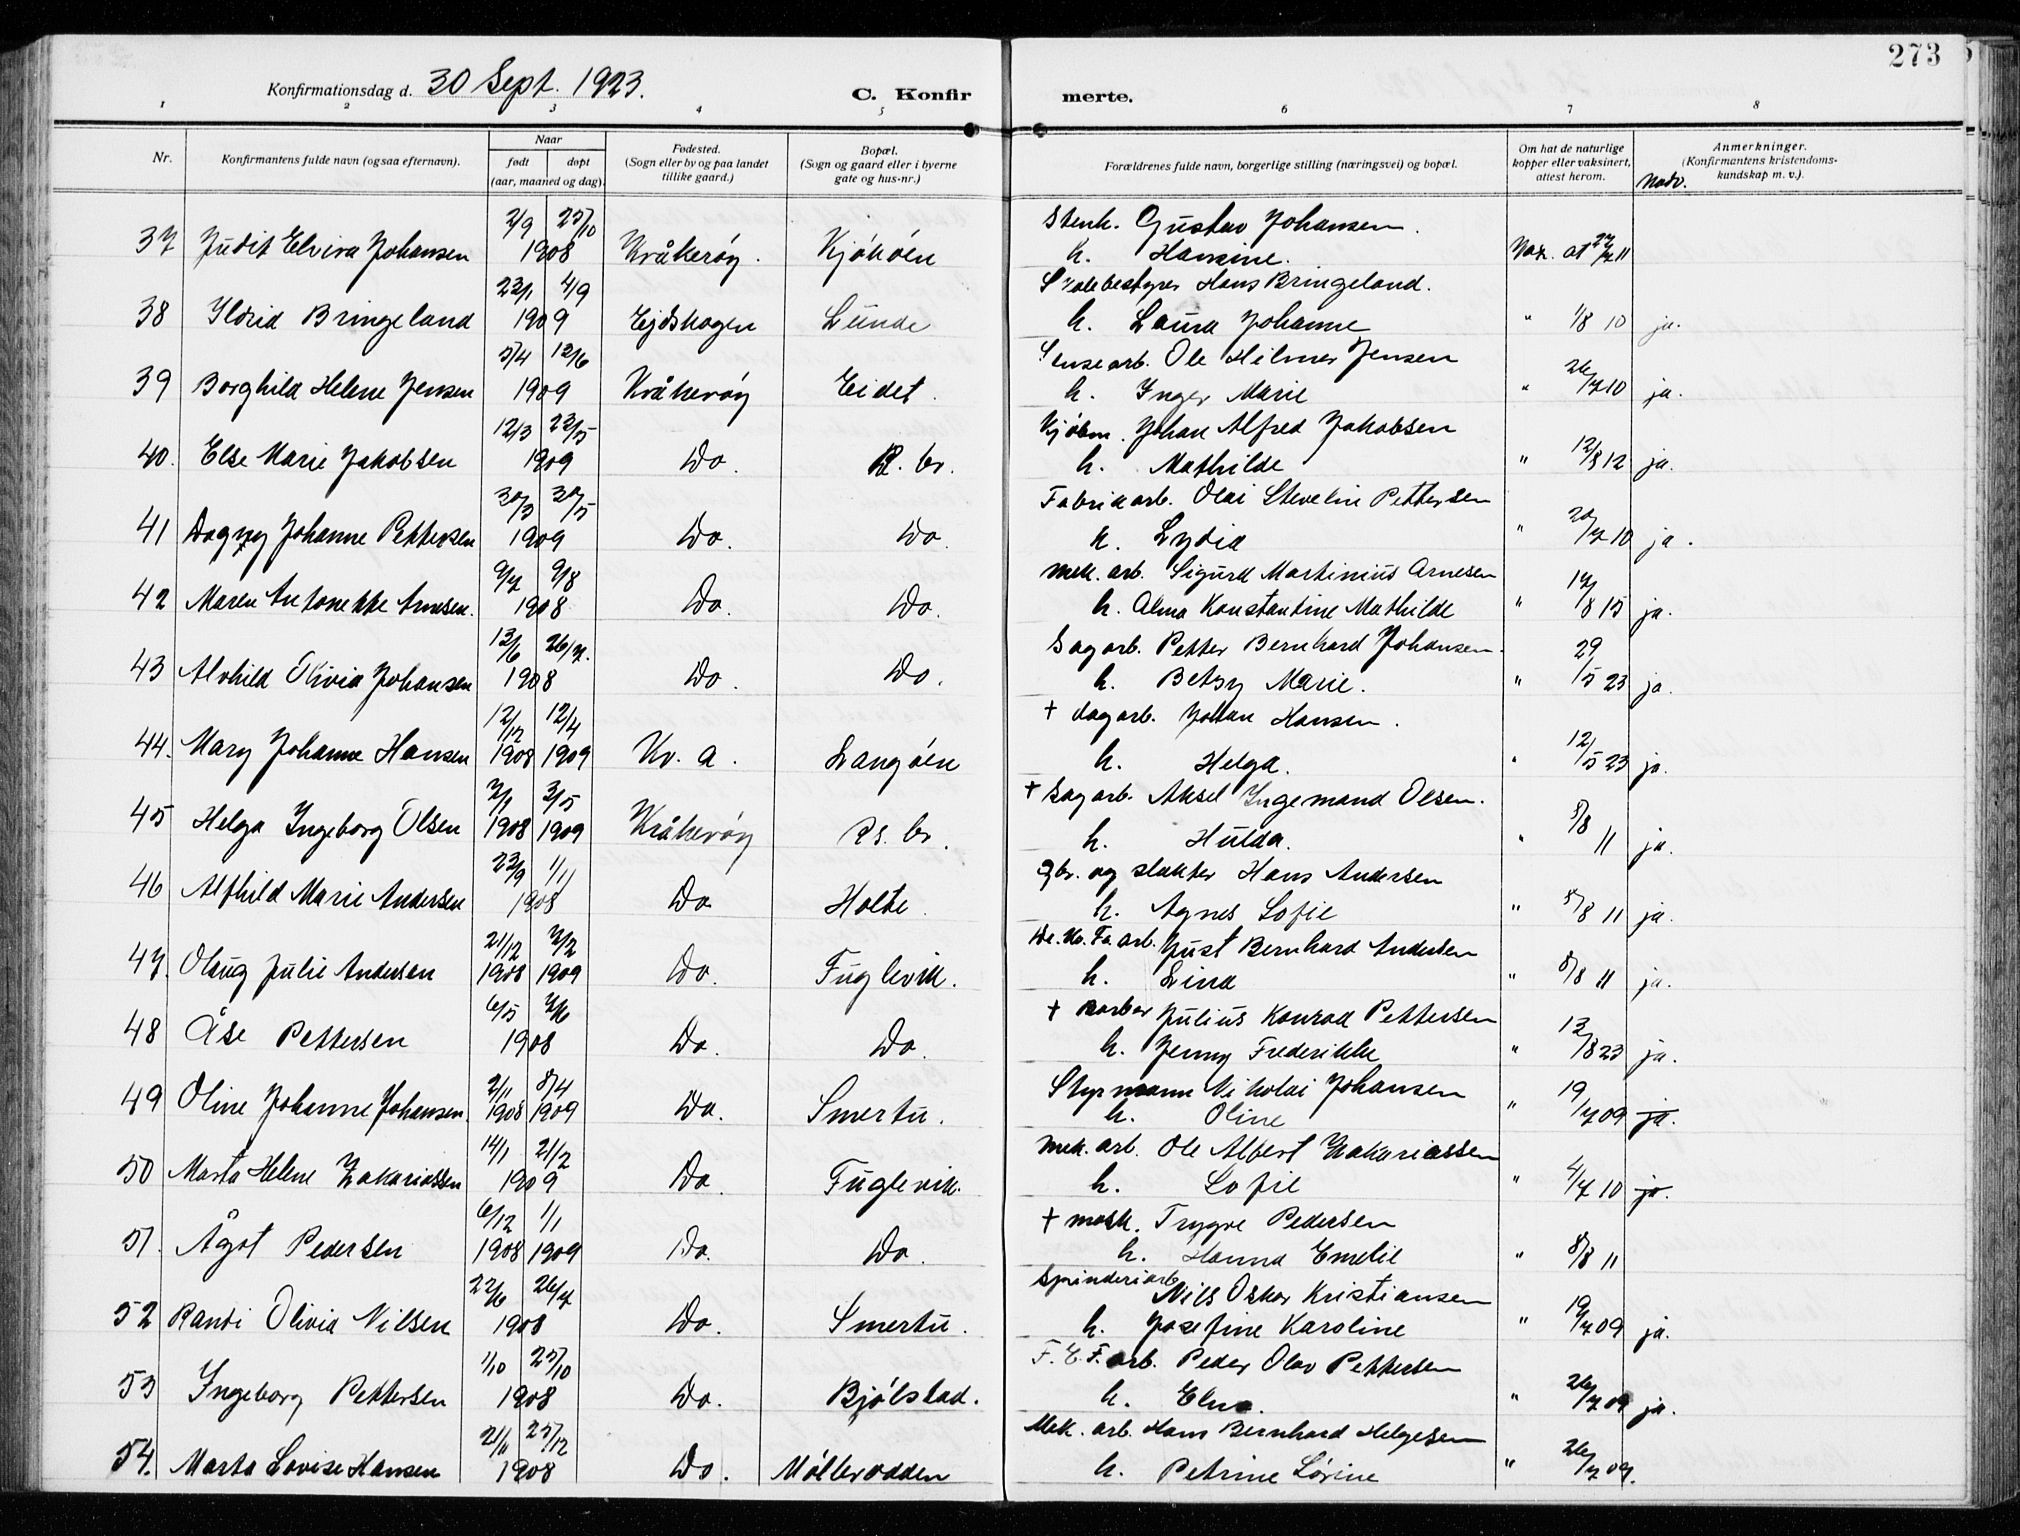 273
Konfirmationsdag d. 30 Sept. 1923. C. Konfir merte.
1 2 3 4 5 6 7 8
Nr. Konfirmantens fulde navn (ogsaa efternavn). Naar født døpt (aar, maaned og dag). Fødested. (Sogn eller by og paa landet tillike gaard.) Bopæl. (Sogn og gaard eller i byerne gate og hus-nr.) Forældrenes fulde navn, borgerlige stilling (næringsvei) og bopæl. Om hat de naturlige kopper eller vaksinert, attest herom. Anmerkninger. (Konfirmantens kristendoms-kundskap m. v.).
Nadv.
2/9 25/10 Stenh. Gustav Johansen.
37 Judit Elvira Johansen 1908 Kråkerøy. Kjøkøen h. Hansine. Vax. at 27/7 11
23/1 4/9 Skolebestyrer Hans Bringeland.
38 Ildrid Bringeland 1909 Eidskogen Lunde h. Laura Johanne " 1/8 10 ja.
5/4 12/6 Ole Hilmer Jensen
39 Borghild Helene Jensen 1909 Kråkerøy Eidet. h. Inger Marie " 26/7 10 ja.
12/3 23/5 Kjøbm. Johan Alfred Jakobsen
40. Else Marie Jakobsen 1909 Do. h. Mathilde " 12/8 12 ja.
30/3 30/5 Fabrikarb. Olai Stevelin Pettersen
41 Dagny Johanne Pettersen 1909 Do. Do. h. Lydia " 20/7 10 ja.
9/7 9/8 Mek. arb. Sigurd Martinius Arnesen
42 Maren Antonette Arnesen. 1908 Do. Do. h. Alma Konstantine Mathilde " 17/8 15 ja.
13/6 26/7. Sagarb. Petter Bernhard Johansen.
43 Alvhild Olivia Johansen 1908 Do. Do. h. Betsy Marie. " 29/5 23 ja.
12/12 12/4 + dagarb. Johan Hansen.
44. Mary Johanne Hansen 1908 1909 Kr. a. Langøen h. Helga. " 12/5 23 ja.
7/1 3/5 + Sagarb. Aksel Ingemand Olsen.
45 Helga Ingeborg Olsen 1908 1909 Kråkerøy Rs. br. h. Hulda. " 8/8 11 ja.
23/9 1/11 Gbr. og slakter Hans Andersen
46 Alfhild Marie Andersen 1908 Do Holte. h. Agnes Sofie " 8/8 11 ja.
21/12 7/2 Just Bernhard Andersen
47. Olaug Julie Andersen 1908 1909 Do. Fuglevik. h. Lina " 8/8 11 ja.
6/5 7/6 + Barber Julius Konrad Pettersen
48 Åse Pettersen 1908 Do. Do. h. Jenny Frederikke " 13/8 23 ja.
2/11 8/4 Styrmann Nikolai Johansen
49 Oline Johanne Johansen. 1908 1909 Do. Smertu. h. Oline " 19/7 09 ja.
14/1 21/2 Mek. arb. Ole Albert Zakariassen
50 Marta Helene Zakariassen 1909 Do. Fuglevik. h. Sofie " 4/7 10 ja.
6/12 1/1 + mask. Trygve Pedersen
51. Ågot Pedersen 1908 1909 Do. Do. h. Hanna Emelie " 8/8 11
22/6 26/7 Spinderiarb Nils Oskar Kristiansen
52 Randi Olivia Nilsen 1908 Do. Smertu. h. Josefine Karoline " 19/7 09 ja.
1/10 25/10 F. E. F. arb. Peder Olav Pettersen
53 Ingeborg Pettersen 1908 Do. Bjølstad. h. Elna. " 26/7 09 ja.
21/11 25/12 Mek. arb. Hans Bernhard Helgesen
54. Marta Lovise Hansen 1908 Do. Møllerodden h. Petrine Lovine " 26/7 09.